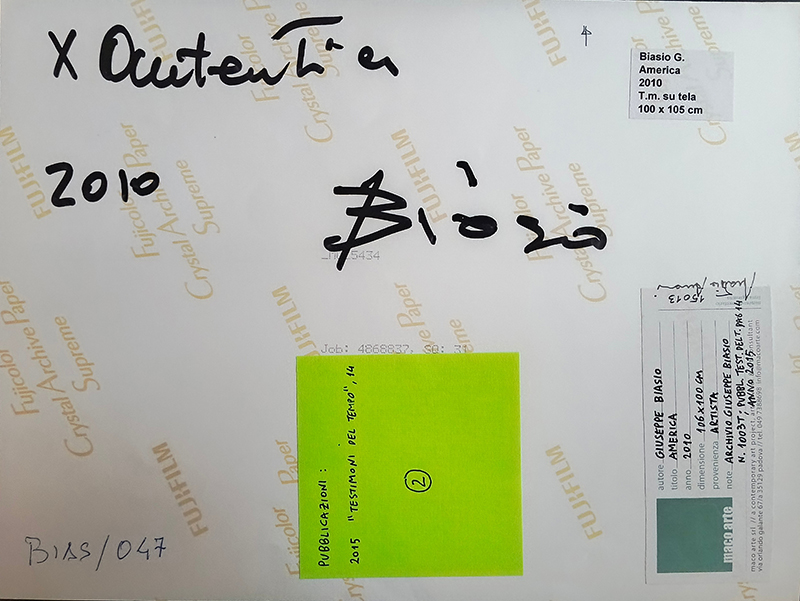 X Autentica
2010
Biasio
Biasio G.
America
2010
T.m. su tela
100 x 105 cm
5434
Job: 4868837, SQ: 31
PUBBLICAZIONI:
2015 "TESTIMONI DEL TEMPO", 14
2
BIAS/047
autore GIUSEPPE BIASIO
titolo AMERICA
anno 2010
dimensione 106x100 CM
provenienza ARTISTA
note ARCHIVIO GIUSEPPE BIASIO
N. 1003T; PUBBL. TEST DELT. PAG 14
, ANNO 2015
15013
maco arte
maco arte srl // a contemporary art project, art consultant
via orlando galante 67/a 35129 padova // tel. 049 7388698 info@macoarte.com
FUJIFILM
Fujicolor
Crystal Archive Paper
Supreme